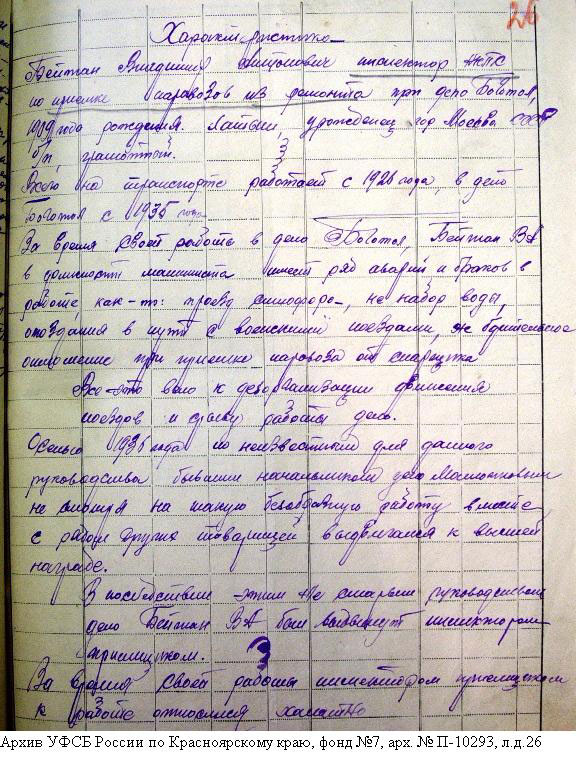 26
Характеристика
Бейтан Владимир Антонович инспектор НКПС
по приемке паровозов из ремонта при депо Боготол,
1909 года рождения. Латыш, уроженец гор Москва СССР
б/п, грамотный.
Всего на транспорте работает с 1926 года, в депо
Боготол с 1935 года
За время своей работы в депо Боготол, Бейтан ВА
в должности машиниста имеет ряд аварий и браков в
работе, как-то: проезд семафора, не набор воды,
опоздания в пути с воинскими поездами, не бдительное
отношение при приемке паровоза от
Все это вело к дезорганизации движения
поездов и срыву работы депо.
Осенью 1935 года по неизвестным для данного
руководства бывшим начальником депо
не смотря на такую безобразную работу вместе
с рядом других товарищей выдвигался к высшей
награде.
В последствии этим же старым руководством
депо Бейтан ВА был выдвинут инспектором-
приемщиком.
За время своей работы инспектором приемщиком
к работе относился халатно
Архив УФСБ России по Красноярскому краю, фонд №7, арх. № П-10293, л.д.26